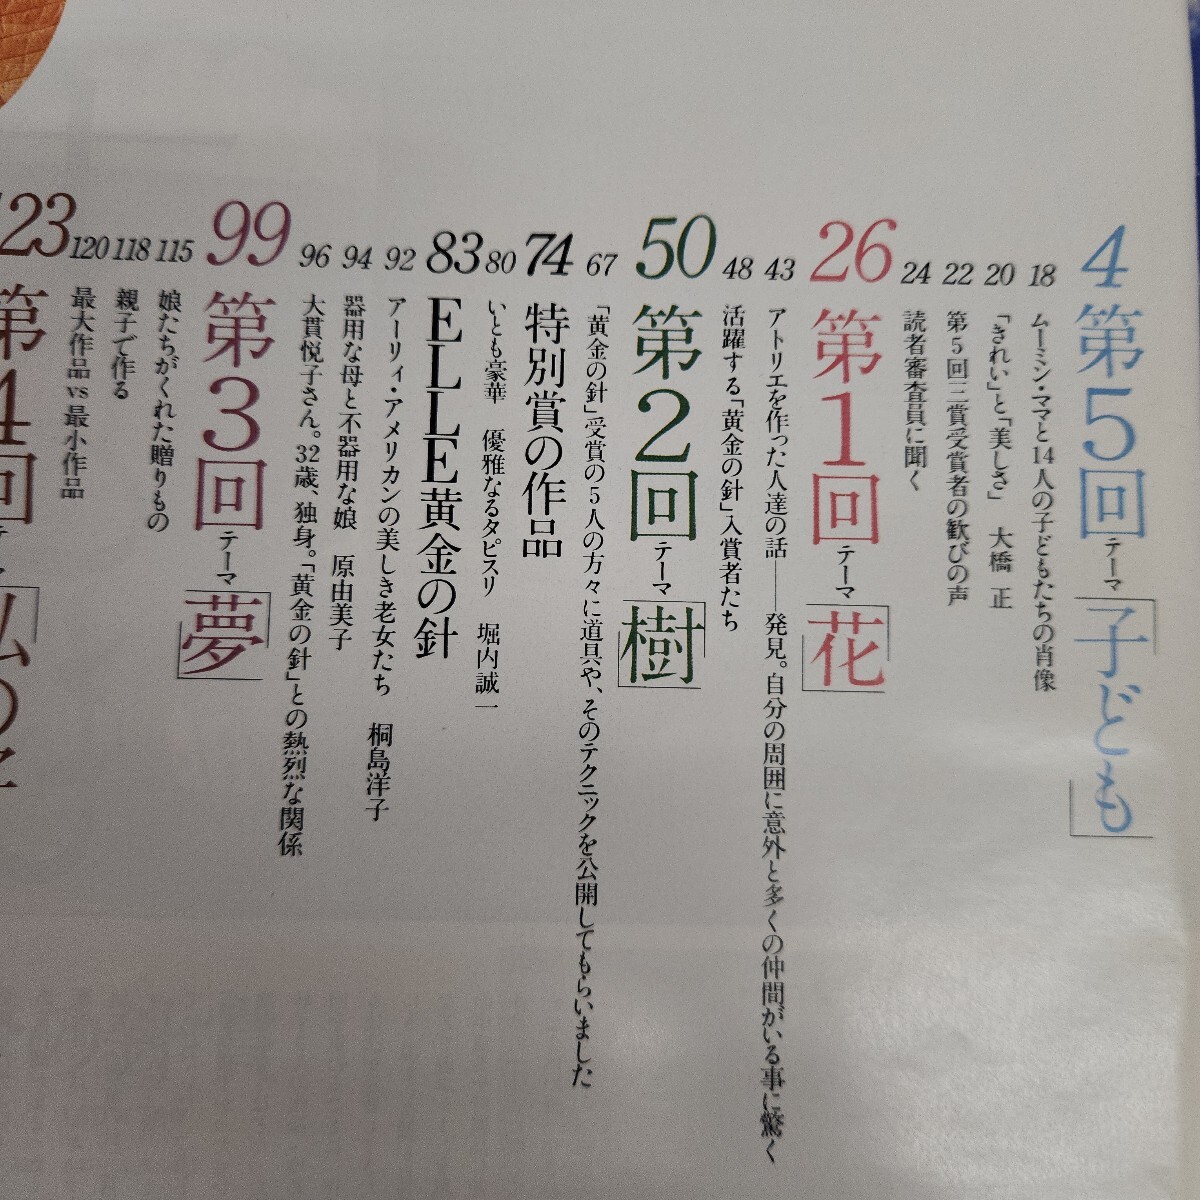 4 第5回 テーマ「子ども」
18 ムーミン・ママと14人の子どもたちの肖像
20 「きれい」と「美しさ」　大橋 正
22 第5回三賞受賞者の歓びの声
24 読者審査員に聞く
26 第1回 テーマ「花」
43 アトリエを作った人達の話——発見。自分の周囲に意外と多くの仲間がいる事に驚く
48 活躍する「黄金の針」入賞者たち
50 第2回 テーマ「樹」
67 「黄金の針」受賞の5人の方々に道具や、そのテクニックを公開してもらいました
74 特別賞の作品
80 いとも豪華　優雅なるタピスリ　堀内誠一
83 ELLE黄金の針
92 アーリィ・アメリカンの美しき老女たち　桐島洋子
94 器用な母と不器用な娘　原由美子
96 大貫悦子さん。32歳、独身。「黄金の針」との熱烈な関係
99 第3回 テーマ「夢」
115 娘たちがくれた贈りもの
118 親子で作る
120 最大作品vs最小作品
123 第4回 テーマ「私の